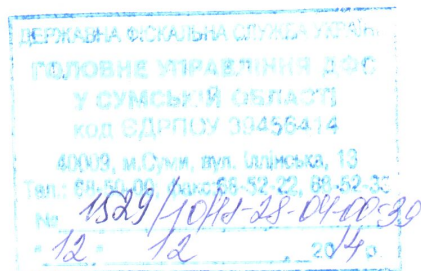 ДЕРЖАВНА ФІСКАЛЬНА СЛУЖБА УКРАЇН
ГОЛОВНЕ УПРАВЛІННЯ ДФС
У СУМСЬКІЙ ОБЛАСТІ
код ЄДРПОУ 39456414
40009, м.Суми, вул. Іллінська, 13
Тел.: 68-50-00; факс: 68-52-22, 68-52-3
№ 1529/10/18-28-04-00-39
" 12 " 12 2014 р.